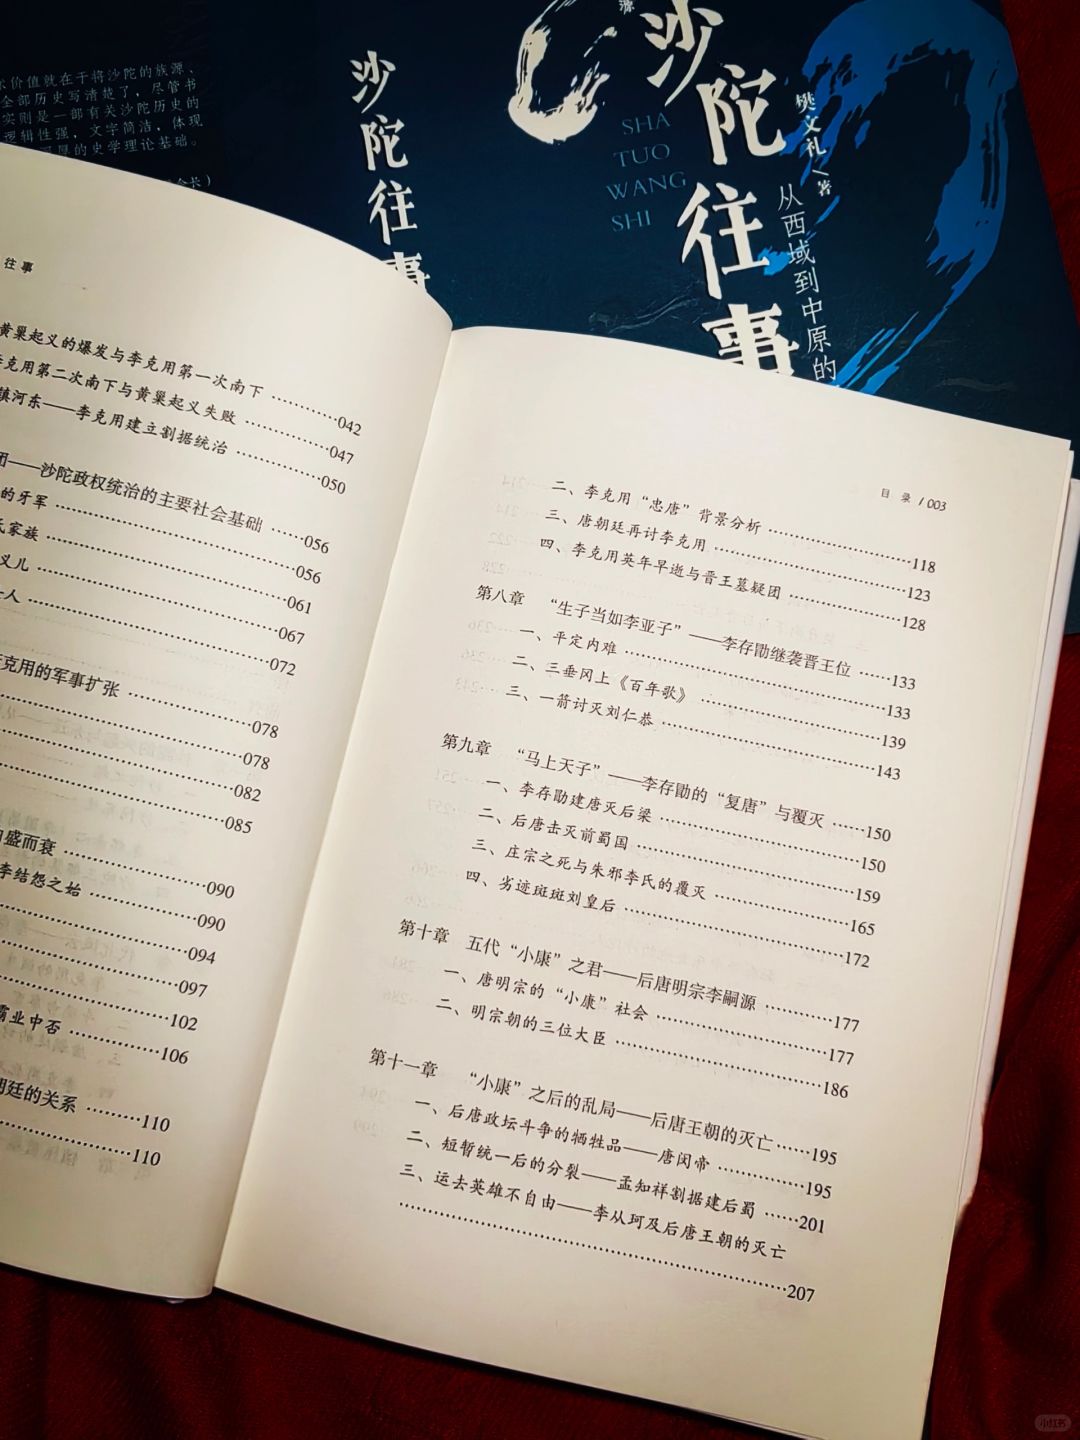 价值就在于将沙陀的族源、
全部历史写清楚了，尽管书
实则是一部有关沙陀历史的
逻辑性强，文字简洁，体现
的史学理论基础。
会长）
沙陀往事
沙陀往事
SHA
TUO
WANG
SHI
樊文礼/著
从西域到中原的
往事
黄巢起义的爆发与李克用第一次南下 …………042
克用第二次南下与黄巢起义失败 …………047
镇河东——李克用建立割据统治 …………050
团——沙陀政权统治的主要社会基础 ……056
的牙军 …………056
氏家族 …………061
义儿 …………067
人 …………072
克用的军事扩张 …………078
…………078
…………082
…………085
盛而衰 …………090
李结怨之始 …………090
…………094
…………097
…………102
霸业中否 …………106
朝廷的关系 ………110
…………110
目 录 / 003
二、李克用“忠唐”背景分析 …………118
三、唐朝廷再讨李克用 …………123
四、李克用英年早逝与晋王墓疑团 …………128
第八章 “生子当如李亚子”——李存勖继袭晋王位 ……133
一、平定内难 …………133
二、三垂冈上《百年歌》 …………139
三、一箭讨灭刘仁恭 …………143
第九章 “马上天子”——李存勖的“复唐”与覆灭 ……150
一、李存勖建唐灭后梁 …………150
二、后唐击灭前蜀国 …………159
三、庄宗之死与朱邪李氏的覆灭 …………165
四、劣迹斑斑刘皇后 …………172
第十章 五代“小康”之君——后唐明宗李嗣源 …………177
一、唐明宗的“小康”社会 …………177
二、明宗朝的三位大臣 …………186
第十一章 “小康”之后的乱局——后唐王朝的灭亡 ……195
一、后唐政坛斗争的牺牲品——唐闵帝 …………195
二、短暂统一后的分裂——孟知祥割据建后蜀 ……201
三、运去英雄不自由——李从珂及后唐王朝的灭亡
…………207
小红书